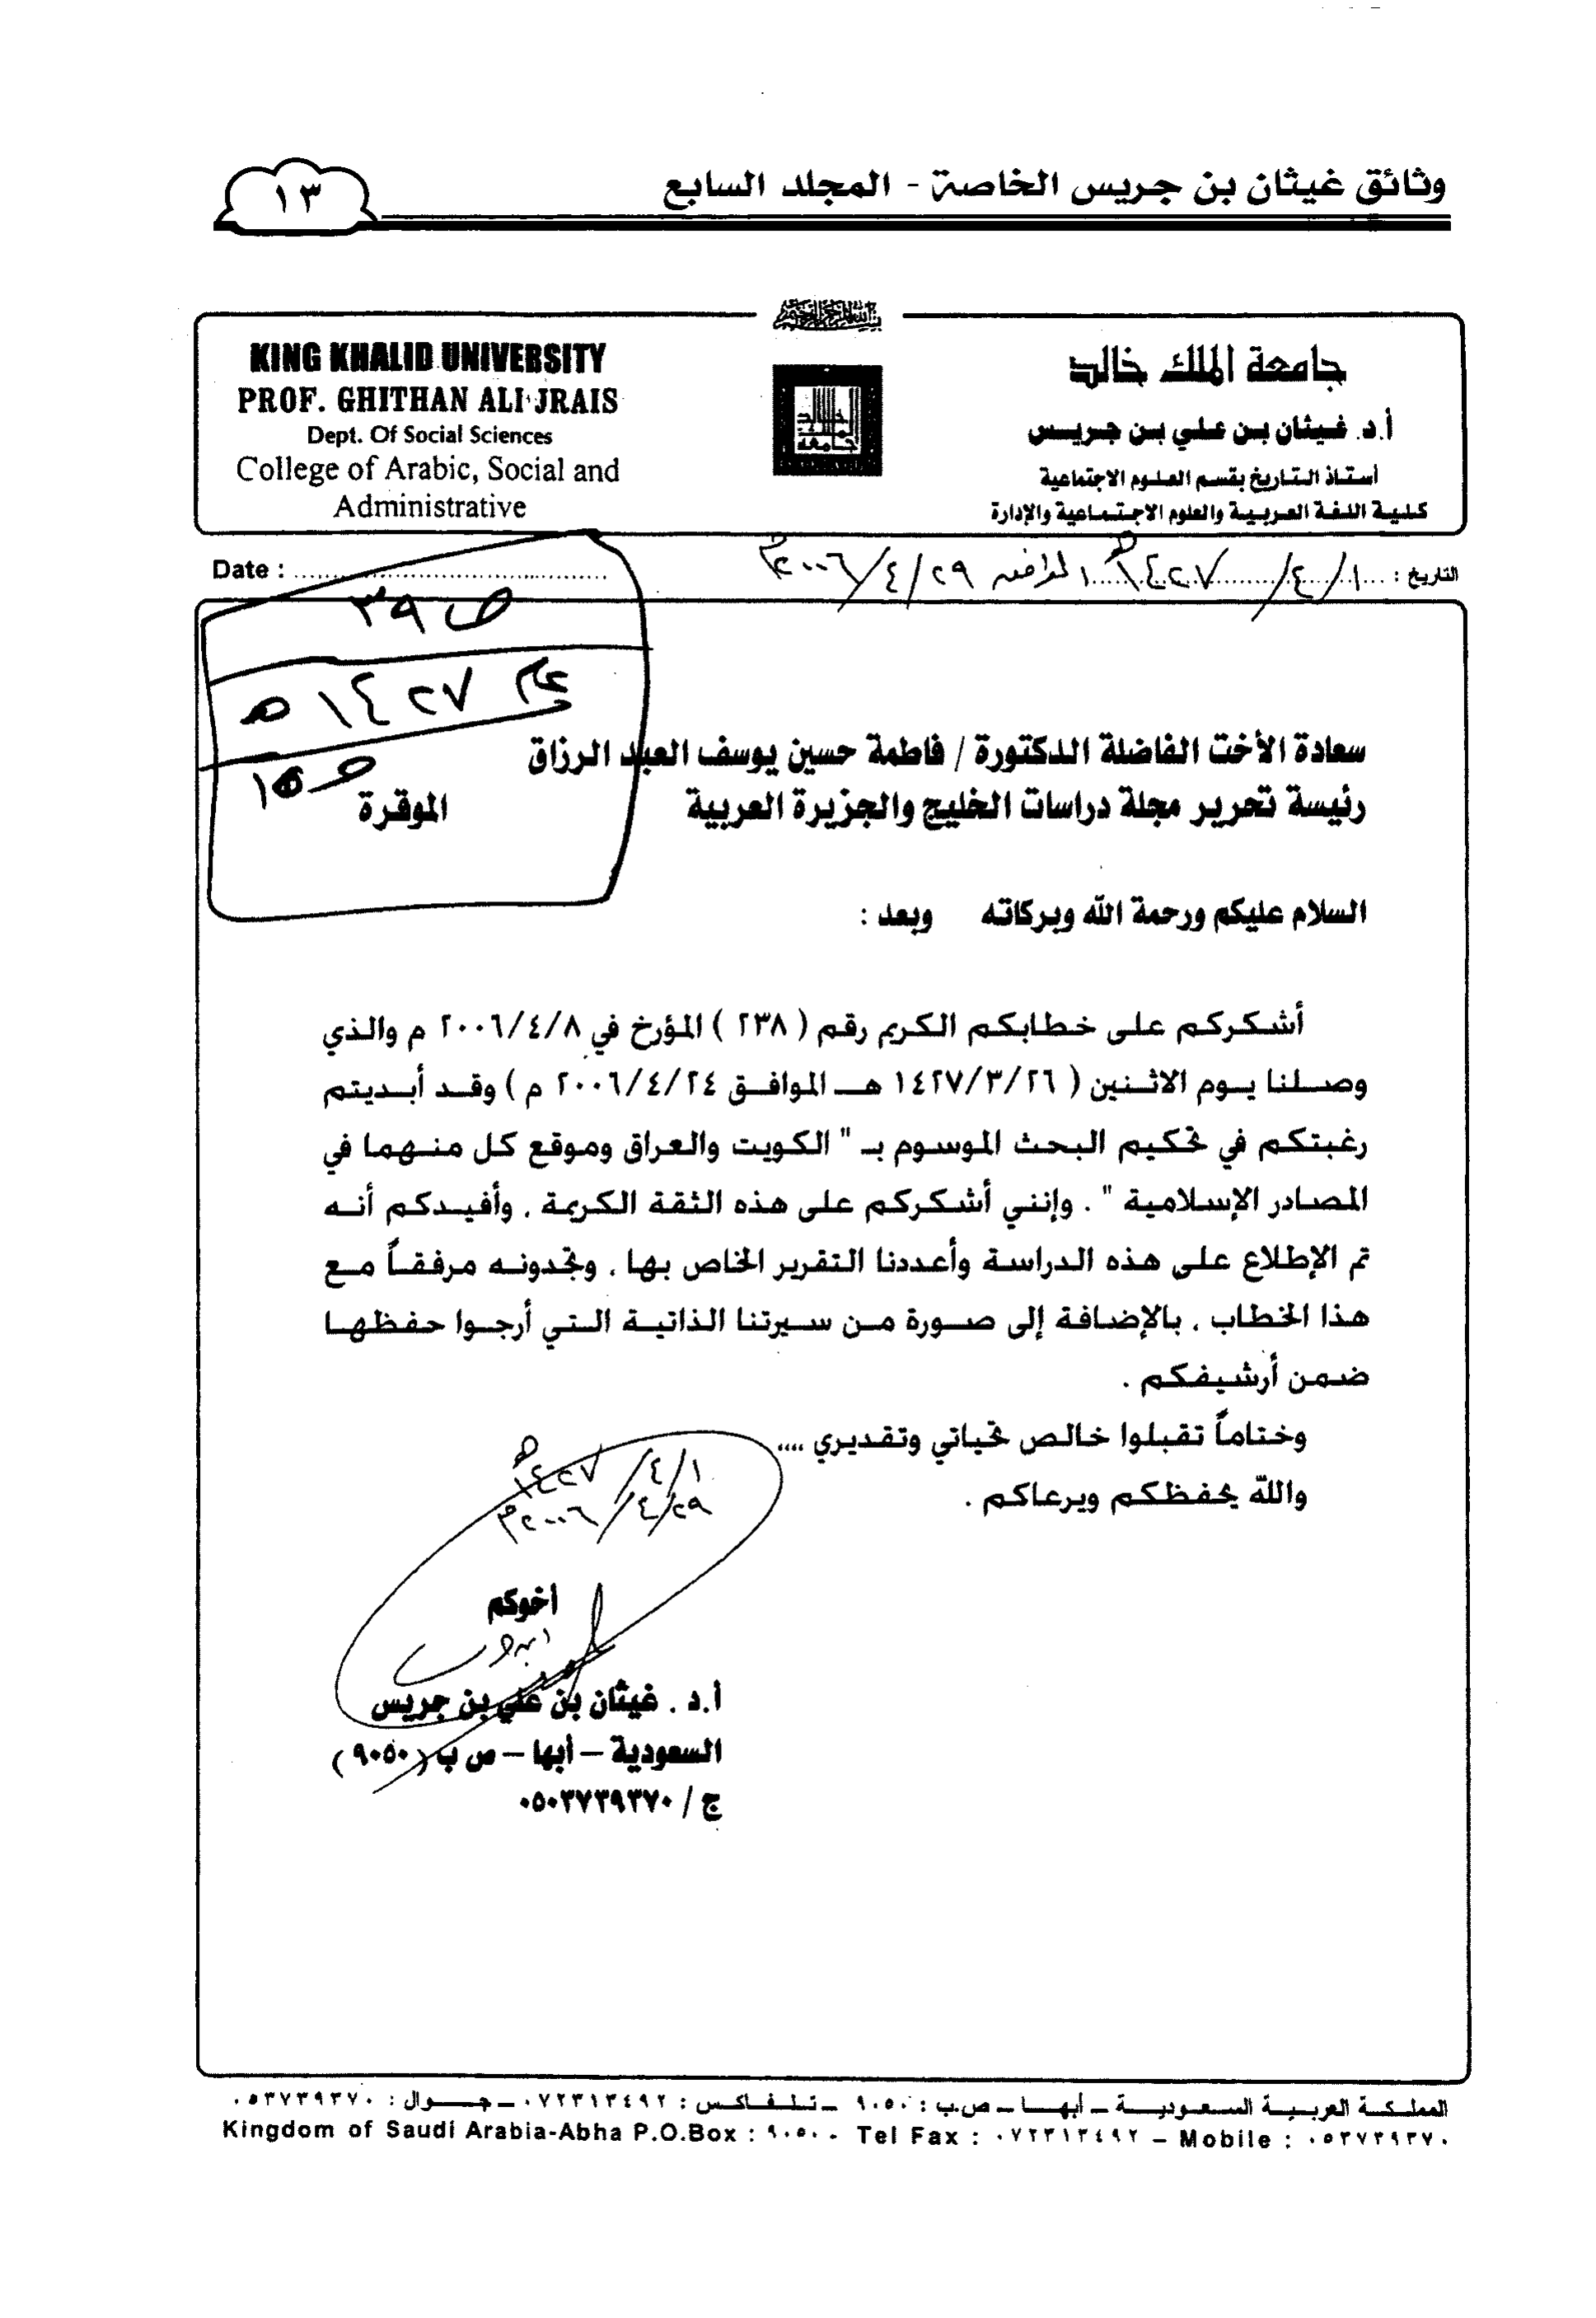 وثائق غيثان بن جريس الخاصة - المجلد السابع
١٣
بسم الله الرحمن الرحيم
جامعة الملك خالد
أ.د. غيثان بن علي بن جريس
أستاذ التاريخ بقسم العلوم الاجتماعية
كلية اللغة العربية والعلوم الاجتماعية والإدارة
KING KHALID UNIVERSITY
PROF. GHITHAN ALI JRAIS
Dept. Of Social Sciences
College of Arabic, Social and
Administrative
جامعة الملك خالد
التاريخ : ١/٤/١٤٢٧هـ الموافق ٢٩/٤/٢٠٠٦م
Date :
ص ٣٩
عام ١٤٢٧ هـ
سعادة الأخت الفاضلة الدكتورة / فاطمة حسين يوسف العبد الرزاق
رئيسة تحرير مجلة دراسات الخليج والجزيرة العربية الموقرة
السلام عليكم ورحمة الله وبركاته وبعد :
أشكركم على خطابكم الكريم رقم ( ٢٣٨ ) المؤرخ في ٢٠٠٦/٤/٨ م والذي
وصلنا يوم الاثنين ( ١٤٢٧/٣/٢٦ هـ الموافق ٢٠٠٦/٤/٢٤ م ) وقد أبديتم
رغبتكم في تحكيم البحث الموسوم بـ " الكويت والعراق وموقع كل منهما في
المصادر الإسلامية " . وإنني أشكركم على هذه الثقة الكريمة . وأفيدكم أنه
تم الإطلاع على هذه الدراسة وأعددنا التقرير الخاص بها . وتجدونه مرفقاً مع
هذا الخطاب . بالإضافة إلى صورة من سيرتنا الذاتية التي أرجوا حفظها
ضمن أرشيفكم .
وختاماً تقبلوا خالص تحياتي وتقديري ....
والله يحفظكم ويرعاكم .
١/٤/١٤٢٧هـ
٢٩/٤/٢٠٠٦م
أخوكم
أ.د . غيثان بن علي بن جريس
السعودية – أبها – ص ب ( ٩٠٥٠ )
ج / ٠٥٠٣٧٣٩٣٧٠
المملكة العربية السعودية – أبها – ص.ب : ٩٠٥٠ – تلفاكس : ٠٧٢٣١٣٤٩٢ – جوال : ٠٥٣٧٣٩٣٧٠
Kingdom of Saudi Arabia-Abha P.O.Box : ٩٠٥٠ - Tel Fax : ٠٧٢٣١٣٤٩٢ – Mobile : ٠٥٣٧٣٩٣٧٠